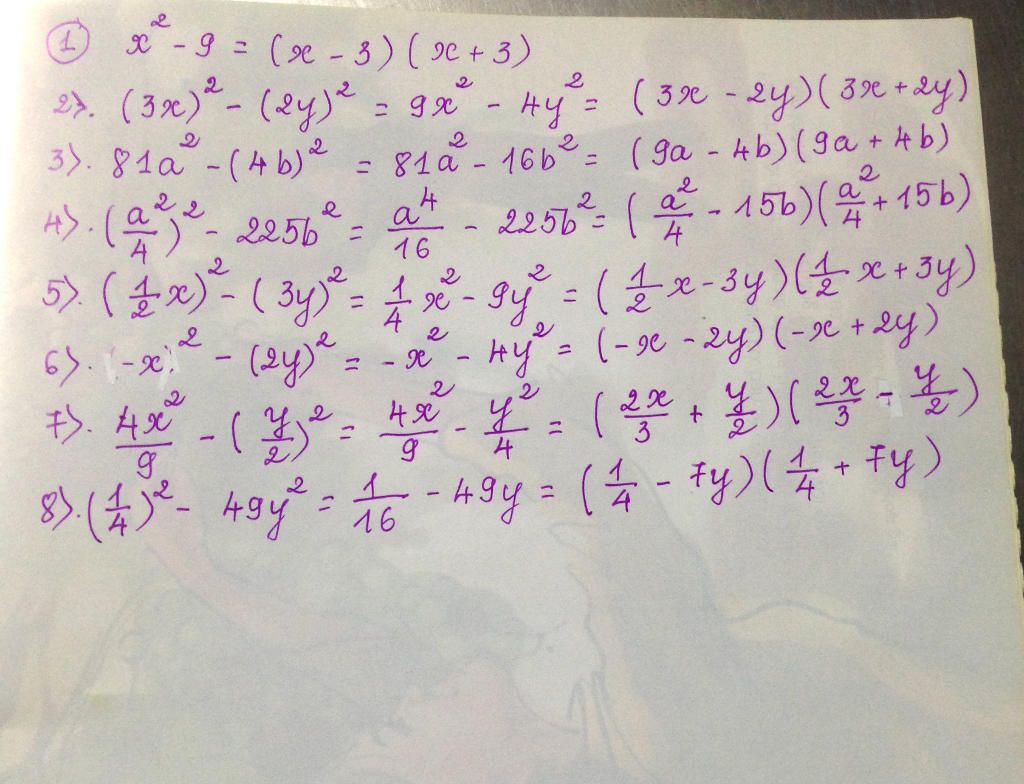 ① x² - 9 = (x - 3)(x + 3)
2). (3x)² - (2y)² = 9x² - 4y² = (3x - 2y)(3x + 2y)
3). 81a² - (4b)² = 81a² - 16b² = (9a - 4b)(9a + 4b)
4). (a²/4)² - 225b² = a⁴/16 - 225b² = (a²/4 - 15b)(a²/4 + 15b)
5). (1/2 x)² - (3y)² = 1/4 x² - 9y² = (1/2 x - 3y)(1/2 x + 3y)
6). (-x)² - (2y)² = -x² - 4y² = (-x - 2y)(-x + 2y)
7). 4x²/9 - (y/2)² = 4x²/9 - y²/4 = (2x/3 + y/2)(2x/3 - y/2)
8). (1/4)² - 49y² = 1/16 - 49y = (1/4 - 7y)(1/4 + 7y)